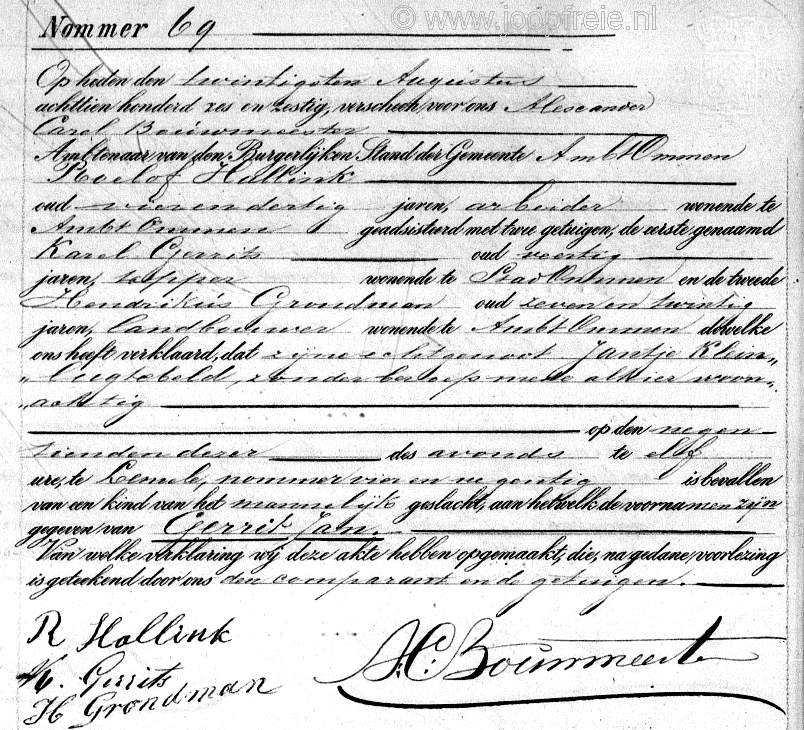 © www.joopfreie.nl
Nommer 69
Op heden den twintigsten Augustus
achttien honderd zes en zestig, verscheen voor ons Alexander
Carel Bouwmeester
Ambtenaar van den Burgerlijken Stand der Gemeente Ambt Ommen
Roelof Hallink
oud vierendertig jaren, arbeider wonende te
Ambt Ommen geadsisteerd met twee getuigen, de eerste genaamd
Karel Gerrits oud veertig
jaren, tapper wonende te Stad Ommen en de tweede
Hendrikus Grondman oud zeven en twintig
jaren, landbouwer wonende te Ambt Ommen dewelke
ons heeft verklaard, dat zijne echtgenoot Jantje Klein
" Lugtebeld, zonder beroep mede alhier woon"
" achtig
op den negen-
tienden dezer des avonds te elf
ure, te Lemele, nommer vier en negentig is bevallen
van een kind van het mannelijk geslacht, aan hetwelk de voornamen zijn
gegeven van Gerrit Jan.
Van welke verklaring wij deze akte hebben opgemaakt, die, na gedane voorlezing
is geteekend door ons den comparant en de getuigen.
R Hallink
K. Gerrits
H Grondman
A: C: Bouwmeester